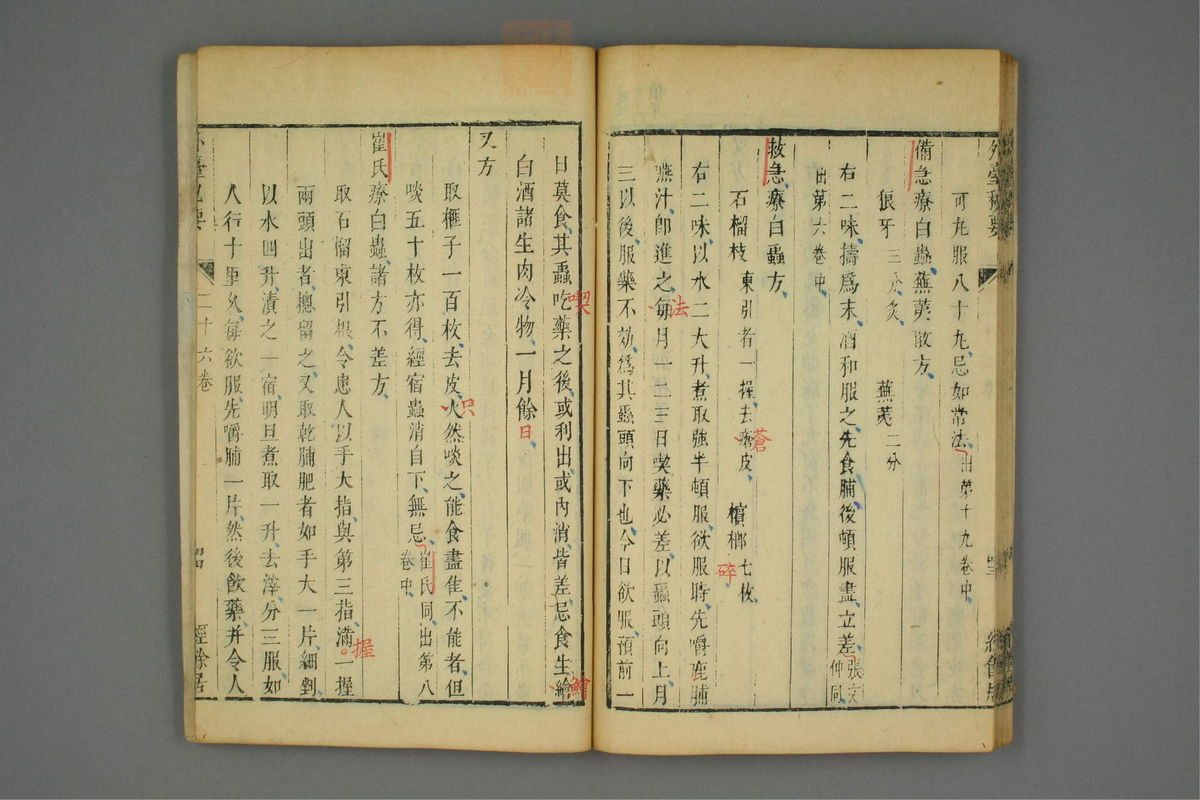 外臺秘要
可丸服八十丸忌如常法出第十九卷中
備急療白蟲蕪荑散方
狼牙三分炙 蕪荑二分
右二味擣爲末酒和服之先食脯後頓服盡立差張文仲同
出第六卷中
救急療白蟲方
石榴枝東引者一握去瘡皮 檳榔七枚
蒼
碎
右二味以水二大升煮取強半頓服欲服時先嚼鹿脯
嚥汁卽進之每月一二三日喫藥必差以蟲頭向上月
法
三以後服藥不効爲其蟲頭向下也今日欲服預前一
日莫食其蟲吃藥之後或利出或內消皆差忌食生繪
喫
鱠
白酒諸生肉冷物一月餘
日
又方
取榧子一百枚去皮火然啖之能食盡佳不能者但
只
啖五十枚亦得經宿蟲消自下無忌崔氏同出第八卷中
崔氏療白蟲諸方不差方
取石榴東引根令患人以手大指與第三指滿一握
握
兩頭出者揔留之又取乾脯肥者如手大一片細剉
以水四升漬之一宿明旦煮取一升去滓分三服如
人行十里久每欲服先嚼脯一片然後飲藥并令人
二十六卷
經餘居